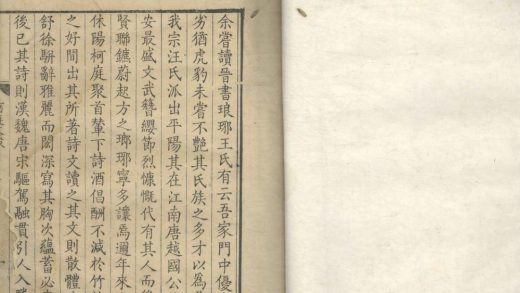 余嘗讀晉書琅琊王氏有云吾家門中優
劣猶虎豹未嘗不艷其氏族之多才以為
我宗汪氏派出平陽其在江南唐越國公
安最盛文武簪纓節烈慷慨代有其人而
賢聯鑣蔚起方之瑯琊寧多讓焉邇年來
休陽柯庭聚首輦下詩酒倡酬不減於竹
之好間出其所著詩文讀之其文則散體
舒徐駢辭雅麗而閎深寫其胸次蘊蓄必
後已其詩則漢魏唐宋驅駕融貫引人入